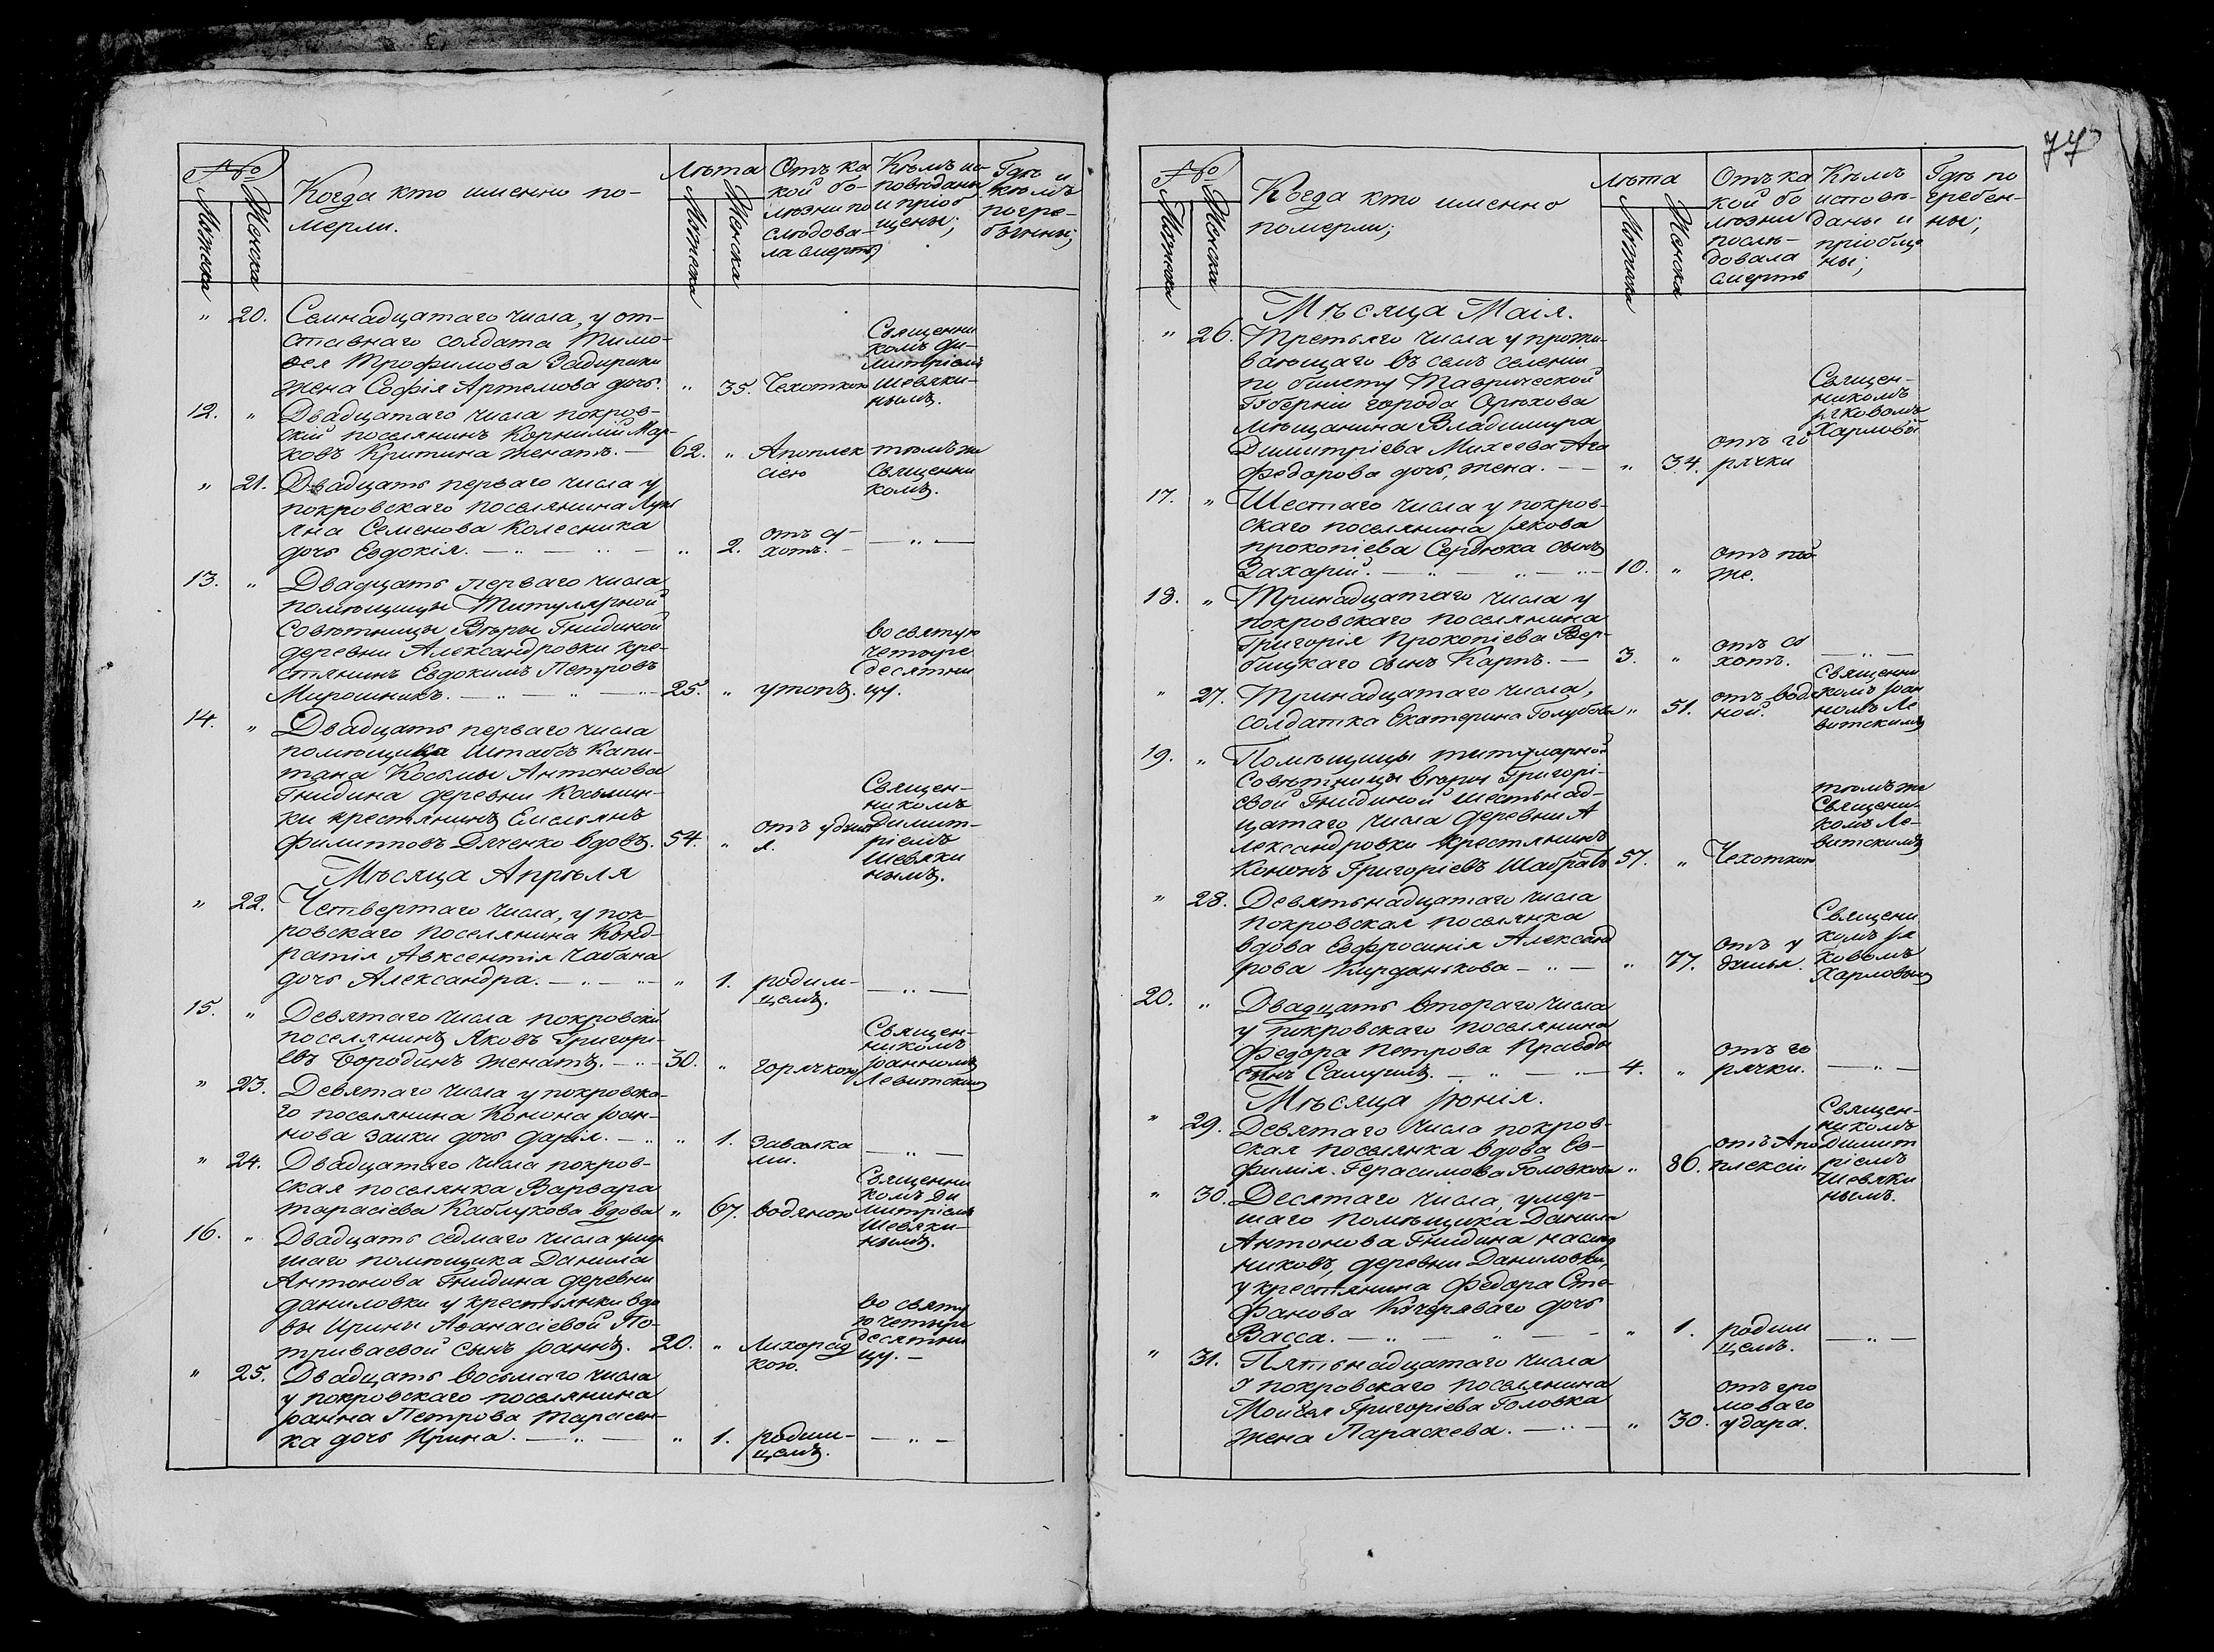 77
№
Мужеска
Женска
Когда кто именно по-
мерли.
Лѣта
Мужеска
Женска
Отъ ка
кой бо-
лѣзни по
слѣдова-
ла смерть
Кѣмъ ис
повѣданы
и приоб
щены;
Гдѣ и
кѣмъ
погре-
бѣнны;
" 20. Семнадцатаго числа, у от-
ставнаго солдата Тимо-
ѳея Трофимова Задирики
жена Софія Артемова дочь. " 35. Чехоткою
Священни
комъ Ди-
митріемъ
Шевяки-
нымъ.
12. " Двадцатаго числа покров-
скій поселянинъ Корнилій Мар-
ковъ Критина женатъ. — 62. " Апоплек
сіею
тѣмъ же
Священни
комъ.
" 21. Двадцать перваго числа у
покровскаго поселянина Луки
яна Семенова Колесника
дочь Евдокія. — " — " — " 2. отъ су-
хотъ. — — " —
13. " Двадцать перваго числа
помѣщицы Титулярной
Совѣтницы Вѣры Гнидиной
деревни Александровки кре-
стянинъ Евдокимъ Петровъ
Мирошникъ. — " — " — " — 25. " утопъ.
во святую
четыре
десятни
цу.
14. " Двадцать перваго числа
помѣщика Штабсъ Капи-
тана Косьмы Антонова
Гнидина деревни Косьмин-
ки крестянинъ Емельянъ
Филипповъ Дяченко вдовъ. 54. " отъ удушь
я.
Священ-
никомъ
Димит-
ріемъ
Шевяки
нымъ.
Мѣсяца Апрѣля
" 22. Четвертаго числа, у пок-
ровскаго поселянина Конд-
ратія Авксентія Чабана
дочь Александра. — " — " — " 1. родим-
цемъ. — " —
15. " Девятаго числа покровскій
поселянинъ Яковъ Григорі-
евъ Бородинъ женатъ. — " — 30. " горячкою
Священ-
никомъ
Іоанномъ
Левитскимъ
" 23. Девятаго числа у покровска-
го поселянина Конона Іоан-
нова Заики дочь Дарія. — " " 1. завалка
ми. — " —
" 24. Двадцатаго числа покров-
ская поселянка Варвара
Тарасіева Каблукова вдова " 67. водяною
Священни
комъ Ди
митріемъ
Шевяки-
нымъ.
16. " Двадцать седмаго числа умер
шаго помѣщика Данила
Антонова Гнидина деревни
Даниловки у крестьянки вдо
вы Ирины Аѳанасіевой По-
триваевой сынъ Іоаннъ. 20. " Лихорад
кою.
во святу
ю четыре
десятни
цу. —
" 25. Двадцать восьмаго числа
у покровскаго поселянина
Іоанна Петрова Тарасен-
ка дочь Ирина. — " — " 1. родим-
цемъ. — " —
№
Мужеска
Женска
Когда кто именно
померли;
Лѣта
Мужеска
Женска
Отъ ка
кой бо
лѣзни
послѣ-
довала
смерть
Кѣмъ
исповѣ-
даны и
пріобще
ны;
Гдѣ по
гребен-
ны;
Мѣсяца Маія.
" 26. Третьяго числа у прожи-
вающаго въ семъ селеніи
по билету Таврической
Губерніи города Орѣхова
мѣщанина Владимира
Димитріева Михеева Ага
Федорова дочь, жена. — — " 34. отъ го
рячки
Священ-
никомъ
Іяковомъ
Харловы
17. " Шестаго числа у покров-
скаго поселянина Іякова
Прокопіева Сердюка сынъ
Захарій. — " — " — " — 10. " отъ той
же.
18. " Тринадцатаго числа у
покровскаго поселянина
Григорія Прокопіева Вер-
бицкаго сынъ Карпъ. — 3. " отъ су
хотъ. — " —
" 27. Тринадцатаго числа,
солдатка Екатерина Голубова " 51. отъ водя
ной.
Священни
комъ Іоан
номъ Ле
витскимъ
19. " Помѣщицы титулярной
Совѣтницы Вѣры Григорі-
евой Гнидиной шестьнад-
цатаго числа деревни А
лександровки крестянинъ
Кононъ Григоріевъ Шабратъ 57. " Чехоткою
тѣмъ же
Священни-
комъ Ле-
витскимъ
" 28. Девятьнадцатаго числа
покровская поселянка
вдова Евфросинія Александ
рова Кирданькова — " — " 77. отъ у
душья.
Священи
комъ Ія
ковомъ
Харловымъ
20. " Двадцать втораго числа
у покровскаго поселянина
Федора Петрова Правды
сынъ Самуилъ. — " — " — 4. " отъ го
рячки. — " —
Мѣсяца Іюнія.
" 29. Девятаго числа покров-
ская поселянка вдова Ев-
фимія Герасимова Головкова " 86. отъ Апо
плексіи
Священ-
никомъ
Димит
ріемъ
Шевяки
нымъ.
" 30. Десятаго числа, умер-
шаго помѣщика Данила
Антонова Гнидина наслед
никовъ, деревни Даниловки,
у крестянина Федора Сте-
фанова Кучеряваго дочь
Васса. — " — " — — " 1. родим
цемъ. — " —
" 31. Пятьнадцатаго числа
у покровскаго поселянина
Моисея Григоріева Головка
жена Параскева. — " — " 30. отъ гро
моваго
удара.